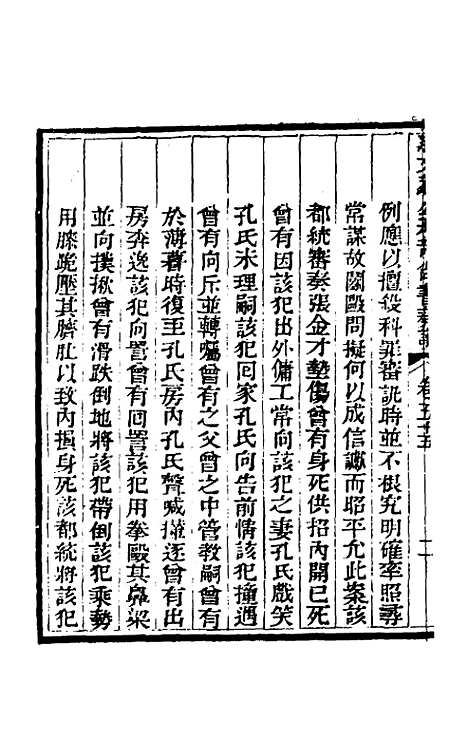 例應以擅殺科罪審訊時並不根究明確率照尋
常謀故鬬毆問擬何以成信讞而昭平允此案該
都統審奏張金才毆傷曾有身死供招內開已死
曾有因該犯出外傭工常向該犯之妻孔氏戲笑
孔氏未理嗣該犯回家孔氏向告前情該犯撞遇
曾有向斥並轉囑曾有之父曾之中管教嗣曾有
於薄暮時復至孔氏房內孔氏聲喊攆逐曾有出
房奔逸該犯向詈曾有回詈該犯用拳毆其鼻梁
並向撲揪曾有滑跌倒地將該犯帶倒該犯乘勢
用膝跪壓其臍肚以致內損身死該都統將該犯
卷五十五
二